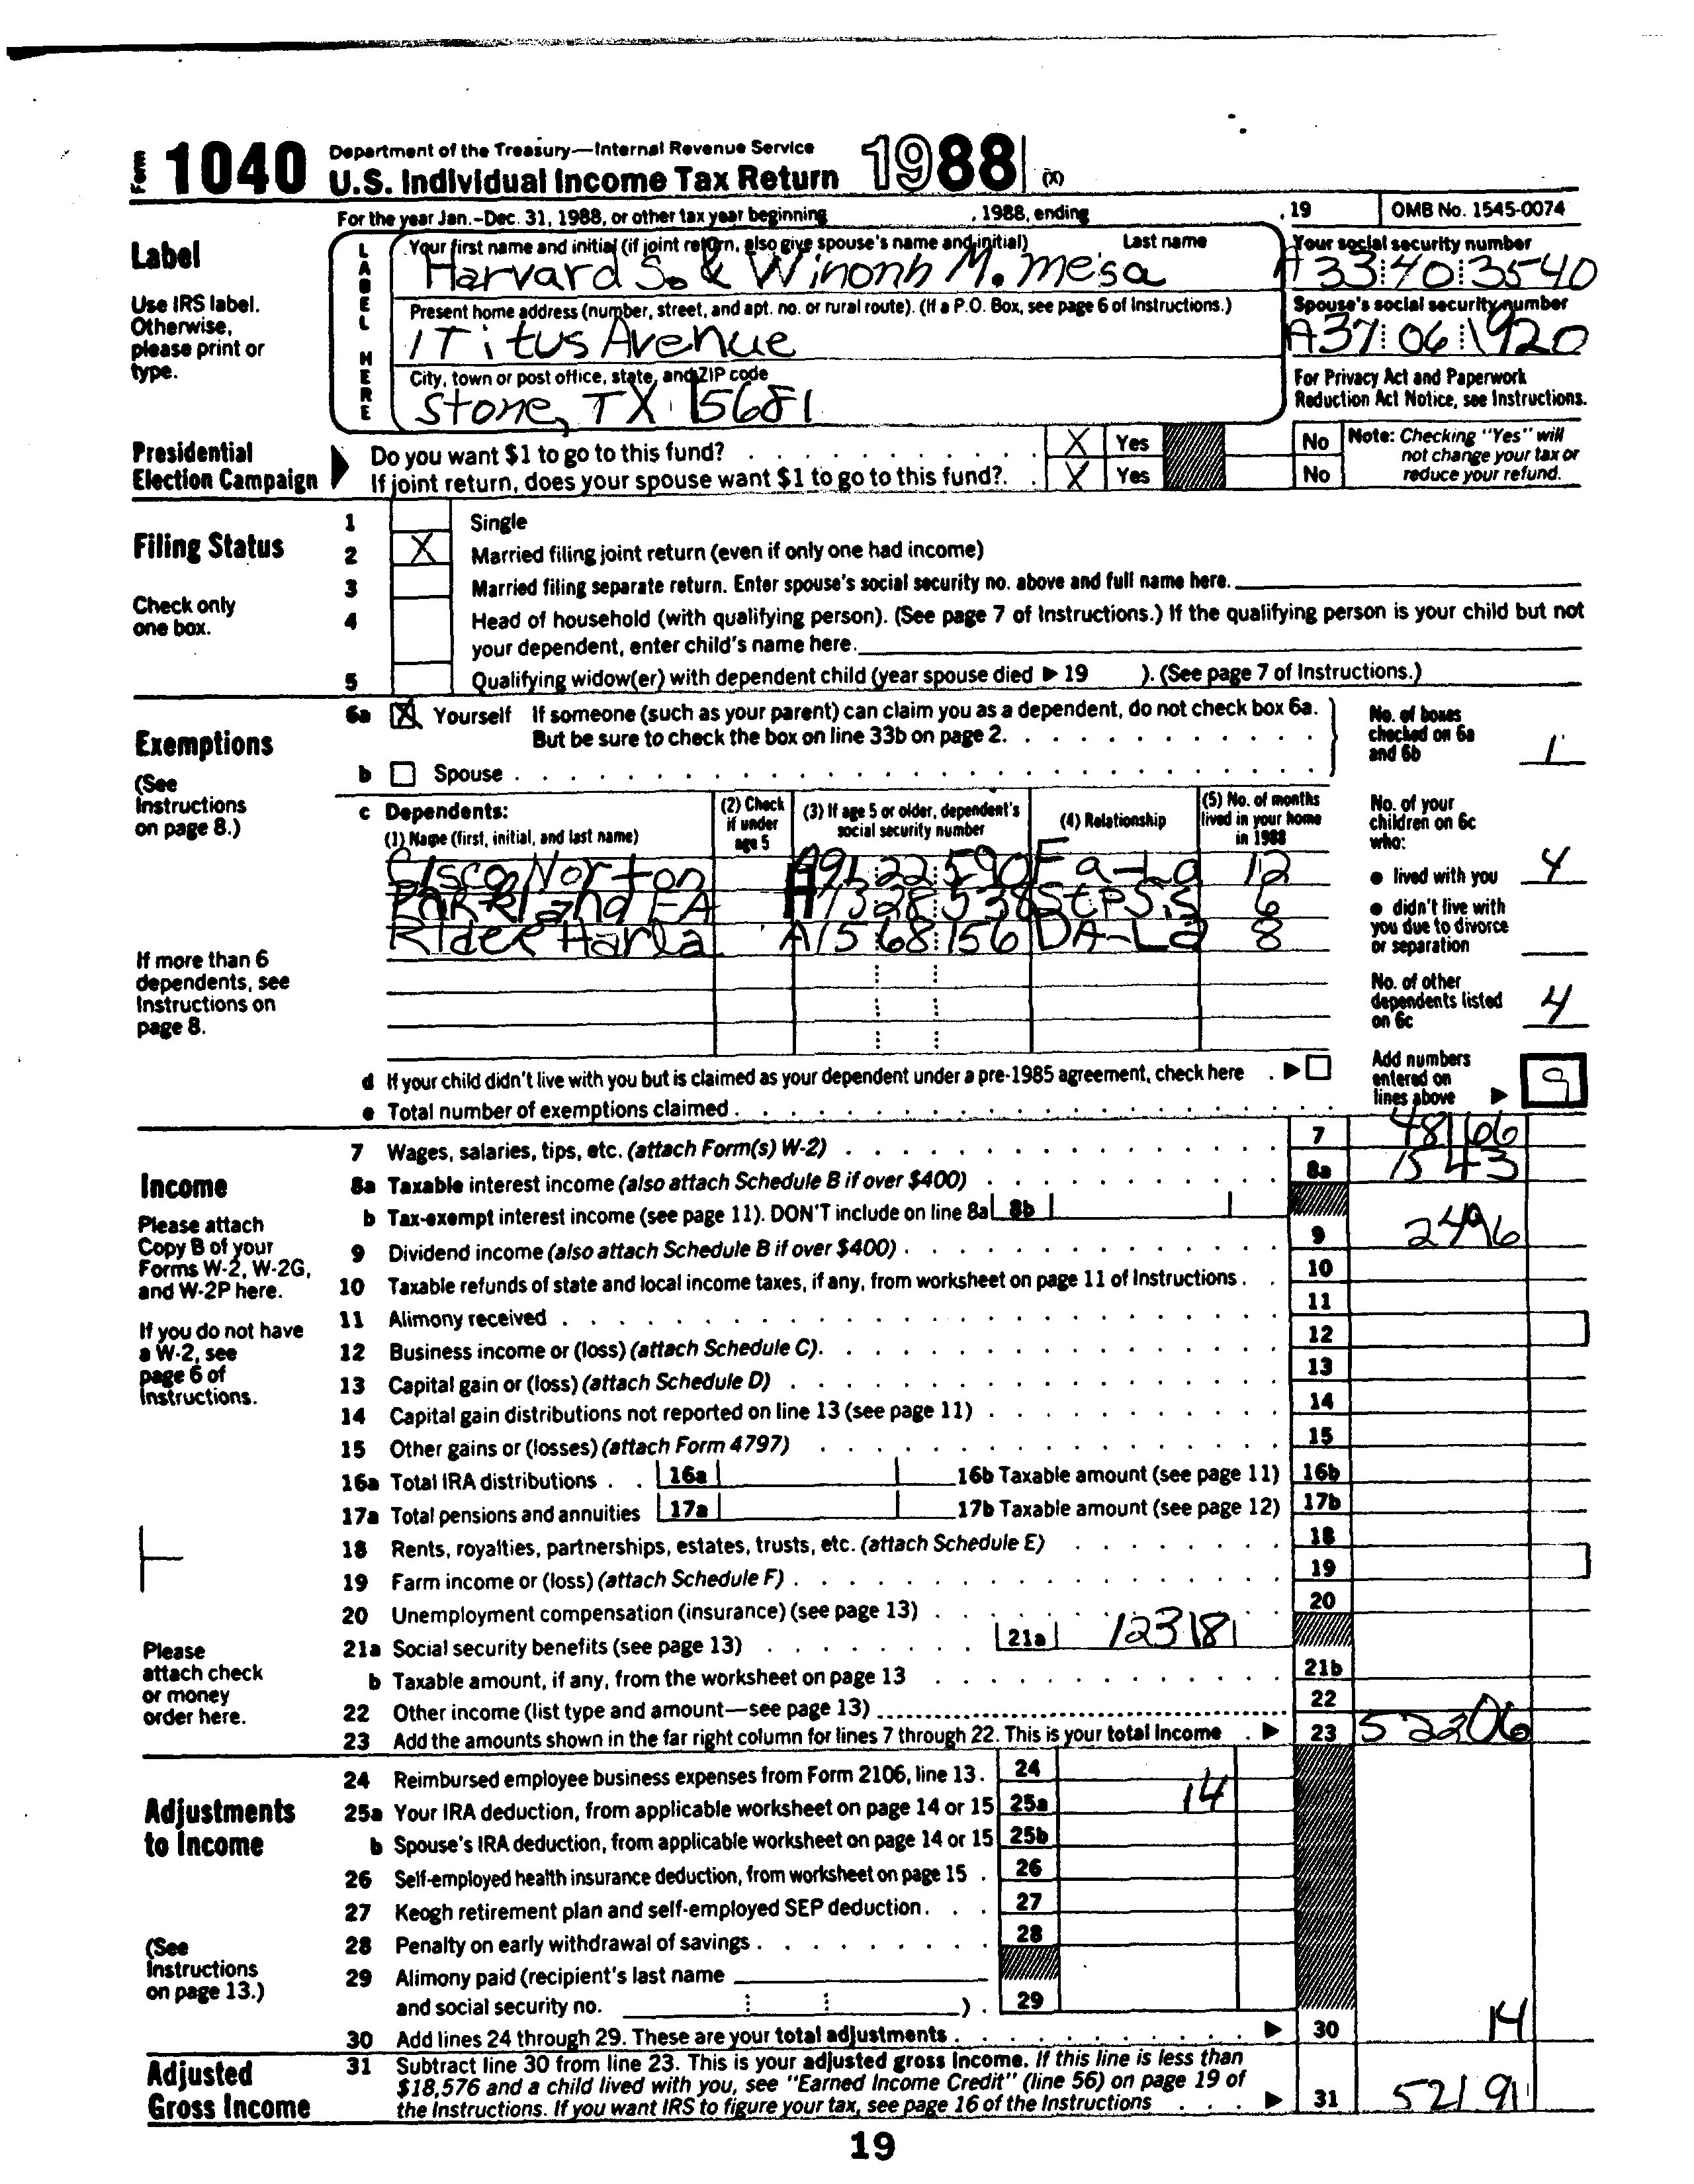 Form 1040 Department of the Treasury—Internal Revenue Service
U.S. Individual Income Tax Return 1988 (X)
For the year Jan.-Dec. 31, 1988, or other tax year beginning , 1988, ending , 19 OMB No. 1545-0074
Label
Use IRS label.
Otherwise,
please print or
type.
LABEL HERE
Your first name and initial (if joint return, also give spouse's name and initial) Last name
Harvard S. & Winonh M. Mesa
Your social security number
A33:40:3540
Present home address (number, street, and apt. no. or rural route). (If a P.O. Box, see page 6 of Instructions.)
1 Titus Avenue
Spouse's social security number
A37:06:1920
City, town or post office, state, and ZIP code
Stone, TX 15681
For Privacy Act and Paperwork
Reduction Act Notice, see Instructions.
Presidential
Election Campaign
Do you want $1 to go to this fund? X Yes No
If joint return, does your spouse want $1 to go to this fund? X Yes No
Note: Checking "Yes" will
not change your tax or
reduce your refund.
Filing Status
Check only
one box.
1 Single
2 X Married filing joint return (even if only one had income)
3 Married filing separate return. Enter spouse's social security no. above and full name here.
4 Head of household (with qualifying person). (See page 7 of Instructions.) If the qualifying person is your child but not
your dependent, enter child's name here.
5 Qualifying widow(er) with dependent child (year spouse died ▶ 19 ). (See page 7 of Instructions.)
Exemptions
(See
Instructions
on page 8.)
If more than 6
dependents, see
Instructions on
page 8.
6a X Yourself If someone (such as your parent) can claim you as a dependent, do not check box 6a.
But be sure to check the box on line 33b on page 2.
b Spouse
No. of boxes
checked on 6a
and 6b 1
c Dependents:
(1) Name (first, initial, and last name)
(2) Check
if under
age 5
(3) If age 5 or older, dependent's
social security number
(4) Relationship
(5) No. of months
lived in your home
in 1988
Cisco Norton A91:22:590 Fa-La 12
Parkland EA A73:28:538 StpSis 6
Rider Harla A15:68:156 DA-La 8
No. of your
children on 6c
who:
● lived with you 4
● didn't live with
you due to divorce
or separation
No. of other
dependents listed
on 6c 4
d If your child didn't live with you but is claimed as your dependent under a pre-1985 agreement, check here ▶
e Total number of exemptions claimed
Add numbers
entered on
lines above ▶ 9
Income
Please attach
Copy B of your
Forms W-2, W-2G,
and W-2P here.
If you do not have
a W-2, see
page 6 of
Instructions.
Please
attach check
or money
order here.
7 Wages, salaries, tips, etc. (attach Form(s) W-2) 7 48166
8a Taxable interest income (also attach Schedule B if over $400) 8a 1543
b Tax-exempt interest income (see page 11). DON'T include on line 8a 8b
9 Dividend income (also attach Schedule B if over $400) 9 2496
10 Taxable refunds of state and local income taxes, if any, from worksheet on page 11 of Instructions 10
11 Alimony received 11
12 Business income or (loss) (attach Schedule C) 12
13 Capital gain or (loss) (attach Schedule D) 13
14 Capital gain distributions not reported on line 13 (see page 11) 14
15 Other gains or (losses) (attach Form 4797) 15
16a Total IRA distributions 16a 16b Taxable amount (see page 11) 16b
17a Total pensions and annuities 17a 17b Taxable amount (see page 12) 17b
18 Rents, royalties, partnerships, estates, trusts, etc. (attach Schedule E) 18
19 Farm income or (loss) (attach Schedule F) 19
20 Unemployment compensation (insurance) (see page 13) 20
21a Social security benefits (see page 13) 21a 12318
b Taxable amount, if any, from the worksheet on page 13 21b
22 Other income (list type and amount—see page 13) 22
23 Add the amounts shown in the far right column for lines 7 through 22. This is your total income ▶ 23 52206
Adjustments
to Income
(See
Instructions
on page 13.)
24 Reimbursed employee business expenses from Form 2106, line 13. 24
25a Your IRA deduction, from applicable worksheet on page 14 or 15 25a 14
b Spouse's IRA deduction, from applicable worksheet on page 14 or 15 25b
26 Self-employed health insurance deduction, from worksheet on page 15 26
27 Keogh retirement plan and self-employed SEP deduction 27
28 Penalty on early withdrawal of savings 28
29 Alimony paid (recipient's last name
and social security no. ) 29
30 Add lines 24 through 29. These are your total adjustments ▶ 30 14
Adjusted
Gross Income
31 Subtract line 30 from line 23. This is your adjusted gross income. If this line is less than
$18,576 and a child lived with you, see "Earned Income Credit" (line 56) on page 19 of
the Instructions. If you want IRS to figure your tax, see page 16 of the Instructions ▶ 31 52191
19